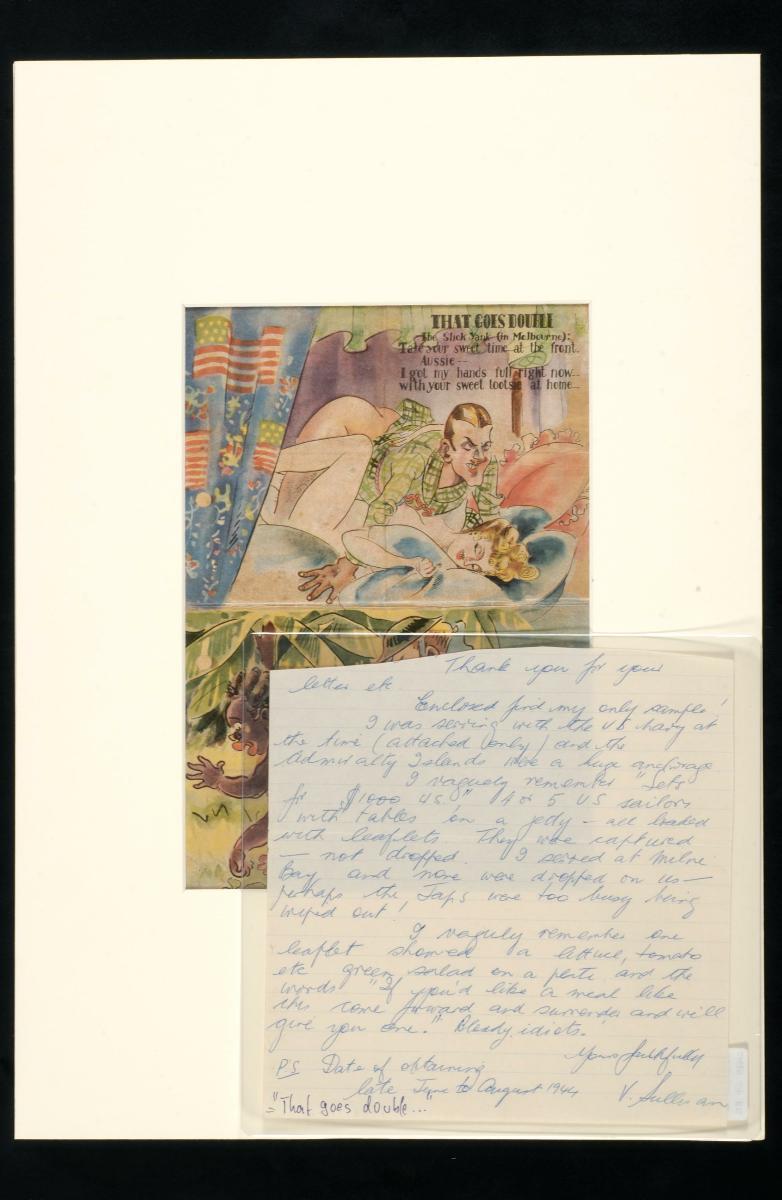 THAT GOES DOUBLE
The Slick Yank (in Melbourne):
Take your sweet time at the front.
Aussie--
I got my hands full right now--
with your sweet tootsie at home--
Thank you for your
letter etc
Enclosed find my only sample!
I was serving with the US Navy at
the time (attached only) and the
Admiralty Islands were a huge anchorage
I vaguely remember "Sets
for $1000 US." 4 or 5 US sailors
with tables on a jetty - all loaded
with leaflets. They were captured
- not dropped. I served at Milne
Bay and none were dropped on us -
perhaps the Japs were too busy being
wiped out!
I vaguely remember one
leaflet showed a lettuce, tomato
etc green salad on a plate and the
words "If you'd like a meal like
this come forward and surrender and will
give you one." Bloody idiots.
Yours faithfully
PS Date of obtaining
late June to August 1944
V. Sullivan
="That goes double..."